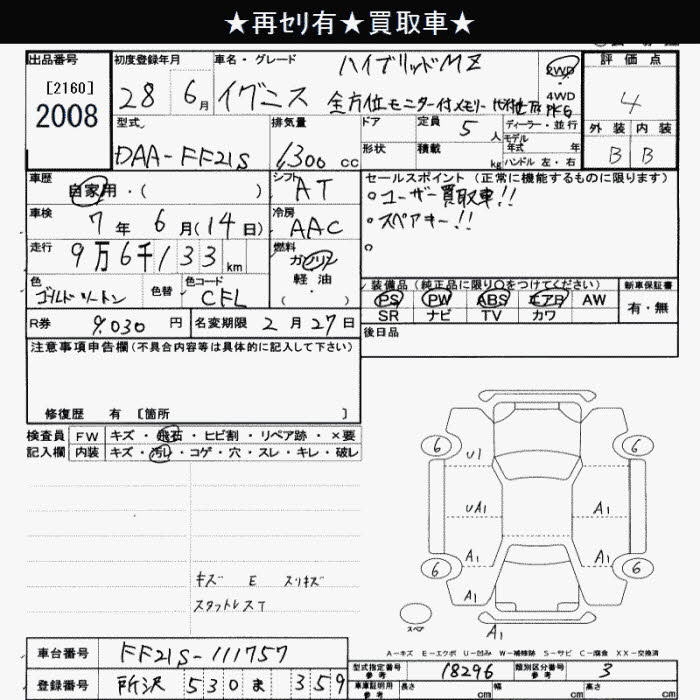 ★再ｾﾘ有★買取車★
出品番号 初度登録年月 車名・グレード 評価点
[2160]
2008
28 6月 イグニス ハイブリッドMZ
2WD
4WD
全方位モニター付メモリー
4
型式 排気量 ドア 定員 5人 ディーラー・並行 外装 内装
DAA-FF21S 1,300 cc 形状 積載 kg モデル年式 年 B B
ハンドル 左・右
車歴 自家用・( ) シフト AT
セールスポイント (正常に機能するものに限ります)
○ユーザー買取車!!
○スペアキー!!
○
車検 7年 6月(14日) 冷房 AAC
走行 9万6千133km 燃料 ガソリン
軽油
( ・ )
色 ゴールドツートン 色替 色コード CFL
装備品 (純正品に限り○をつけてください) 新車保証書
PS PW ABS エアB AW 有・無
SR ナビ TV カワ
R券 9,030円 名変期限 2月27日
後日品
注意事項申告欄(不具合内容等は具体的に記入して下さい)
修復歴 有 [箇所 ]
検査員 FW キズ・飛石・ヒビ割・リペア跡・×要
記入欄 内装 キズ・汚れ・コゲ・穴・スレ・キレ・破レ
6 6
U1
UA1 A1
A1 A1
6 6
A1
スペア
A1
キズ E スリキズ
スタットレスT
A-キズ E-エクボ U-凹み W-補修跡 S-サビ C-腐食 XX-交換済
車台番号 FF21S-111757
登録番号 所沢 530 ま 359
型式指定番号 参考 18296 類別区分番号 参考 3
車庫証明用 参考 長さ cm 幅 cm 高さ cm